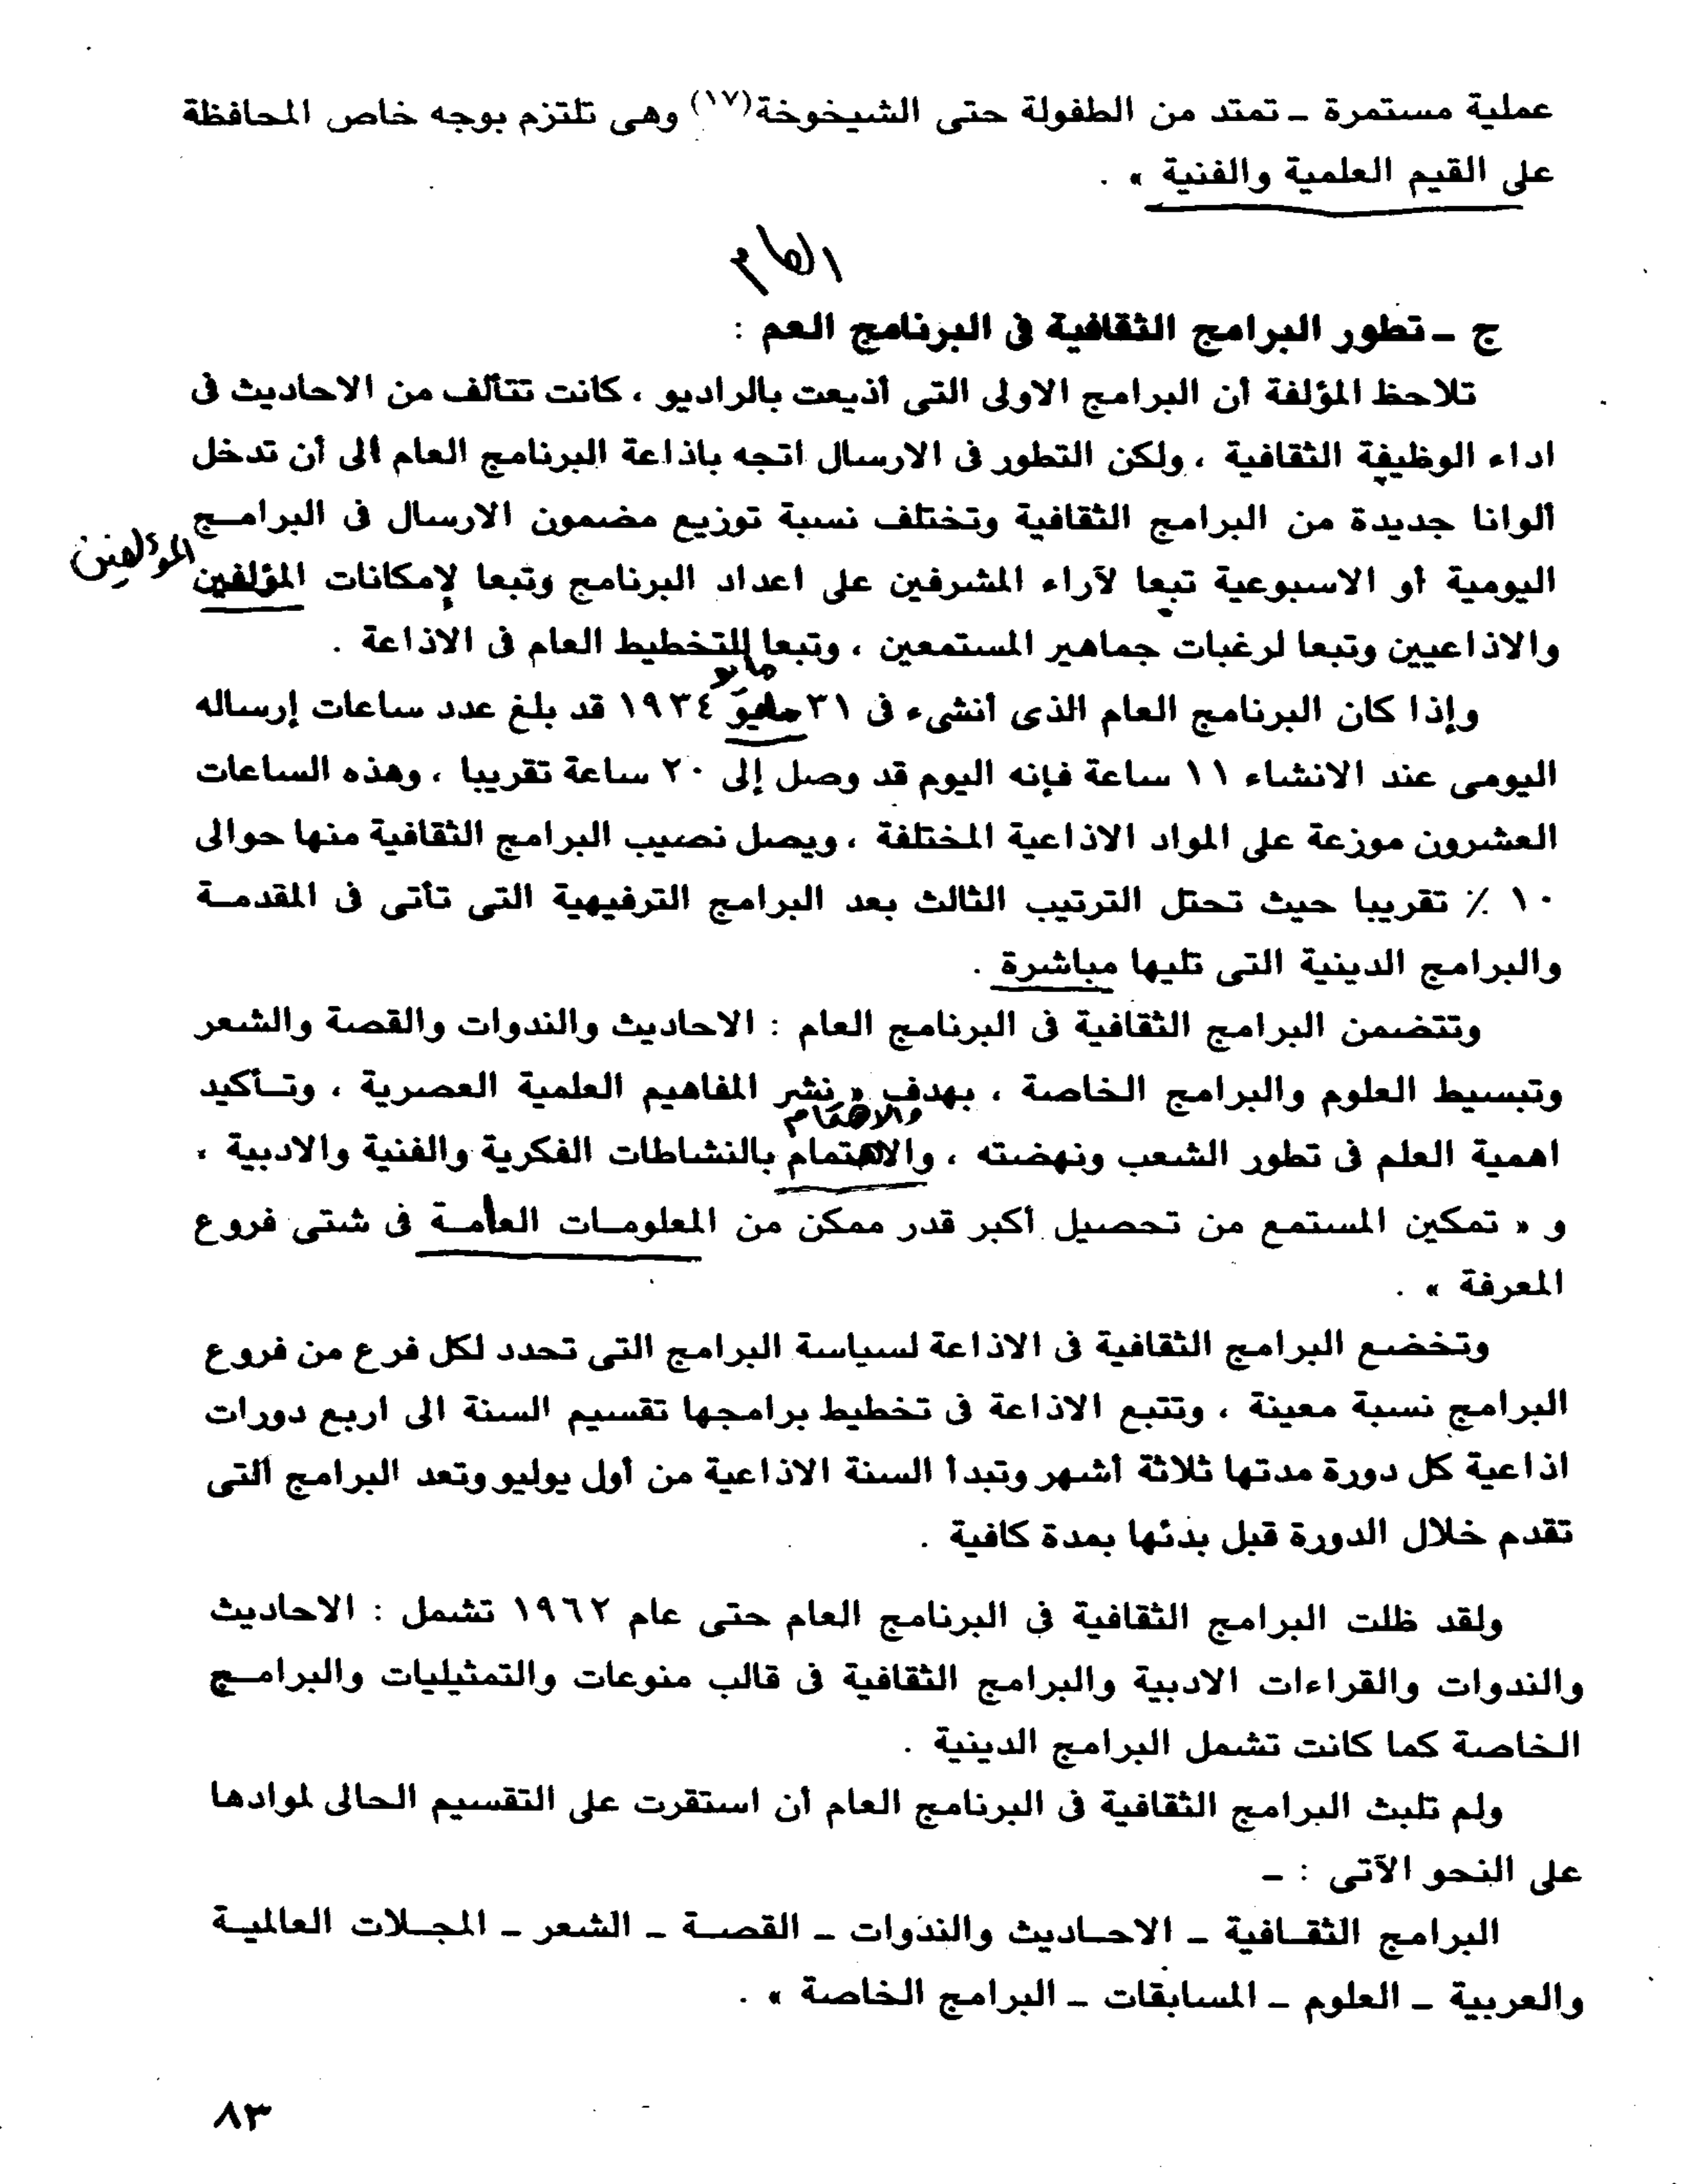 عملية مستمرة ــ تمتد من الطفولة حتى الشيخوخة(١٧) وهى تلتزم بوجه خاص المحافظة
على القيم العلمية والفنية » .
العام
ج ــ تطور البرامج الثقافية فى البرنامج العم :
تلاحظ المؤلفة أن البرامج الاولى التى أذيعت بالراديو ، كانت تتألف من الاحاديث فى
اداء الوظيفة الثقافية ، ولكن التطور فى الارسال اتجه باذاعة البرنامج العام ألى أن تدخل
ألوانا جديدة من البرامج الثقافية وتختلف نسبة توزيع مضمون الارسال فى البرامـج
المؤلفين
اليومية أو الاسبوعية تبعا لآراء المشرفين على اعداد البرنامج وتبعا لإمكانات المؤلفين
والاذاعيين وتبعا لرغبات جماهير المستمعين ، وتبعا للتخطيط العام فى الاذاعة .
مايو
وإذا كان البرنامج العام الذى أنشىء فى ٣١ مايو ١٩٣٤ قد بلغ عدد ساعات إرساله
اليومى عند الانشاء ١١ ساعة فإنه اليوم قد وصل إلى ٢٠ ساعة تقريبا ، وهذه الساعات
العشرون موزعة على المواد الاذاعية المختلفة ، ويصل نصيب البرامج الثقافية منها حوالى
١٠ ٪ تقريبا حيث تحتل الترتيب الثالث بعد البرامج الترفيهية التى تأتى فى المقدمـة
والبرامج الدينية التى تليها مباشرة .
وتتضمن البرامج الثقافية فى البرنامج العام : الاحاديث والندوات والقصة والشعر
وتبسيط العلوم والبرامج الخاصة ، بهدف « نشر المفاهيم العلمية العصرية ، وتـأكيد
والاهتمام
اهمية العلم فى تطور الشعب ونهضته ، والاهتمام بالنشاطات الفكرية والفنية والادبية ،
و « تمكين المستمع من تحصيل أكبر قدر ممكن من المعلومـات العامـة فى شتى فروع
المعرفة » .
وتخضع البرامج الثقافية فى الاذاعة لسياسة البرامج التى تحدد لكل فرع من فروع
البرامج نسبة معينة ، وتتبع الاذاعة فى تخطيط برامجها تقسيم السنة الى اربع دورات
اذاعية كل دورة مدتها ثلاثة أشهر وتبدأ السنة الاذاعية من أول يوليو وتعد البرامج ألتى
تقدم خلال الدورة قبل بدئها بمدة كافية .
ولقد ظلت البرامج الثقافية فى البرنامج العام حتى عام ١٩٦٢ تشمل : الاحاديث
والندوات والقراءات الادبية والبرامج الثقافية فى قالب منوعات والتمثيليات والبرامـج
الخاصة كما كانت تشمل البرامج الدينية .
ولم تلبث البرامج الثقافية فى البرنامج العام أن استقرت على التقسيم الحالى لموادها
على النحو الآتى : ــ
البرامج الثقـافية ــ الاحـاديث والندوات ــ القصـة ــ الشعر ــ المجـلات العالميـة
والعربية ــ العلوم ــ المسابقات ــ البرامج الخاصة » .
٨٣